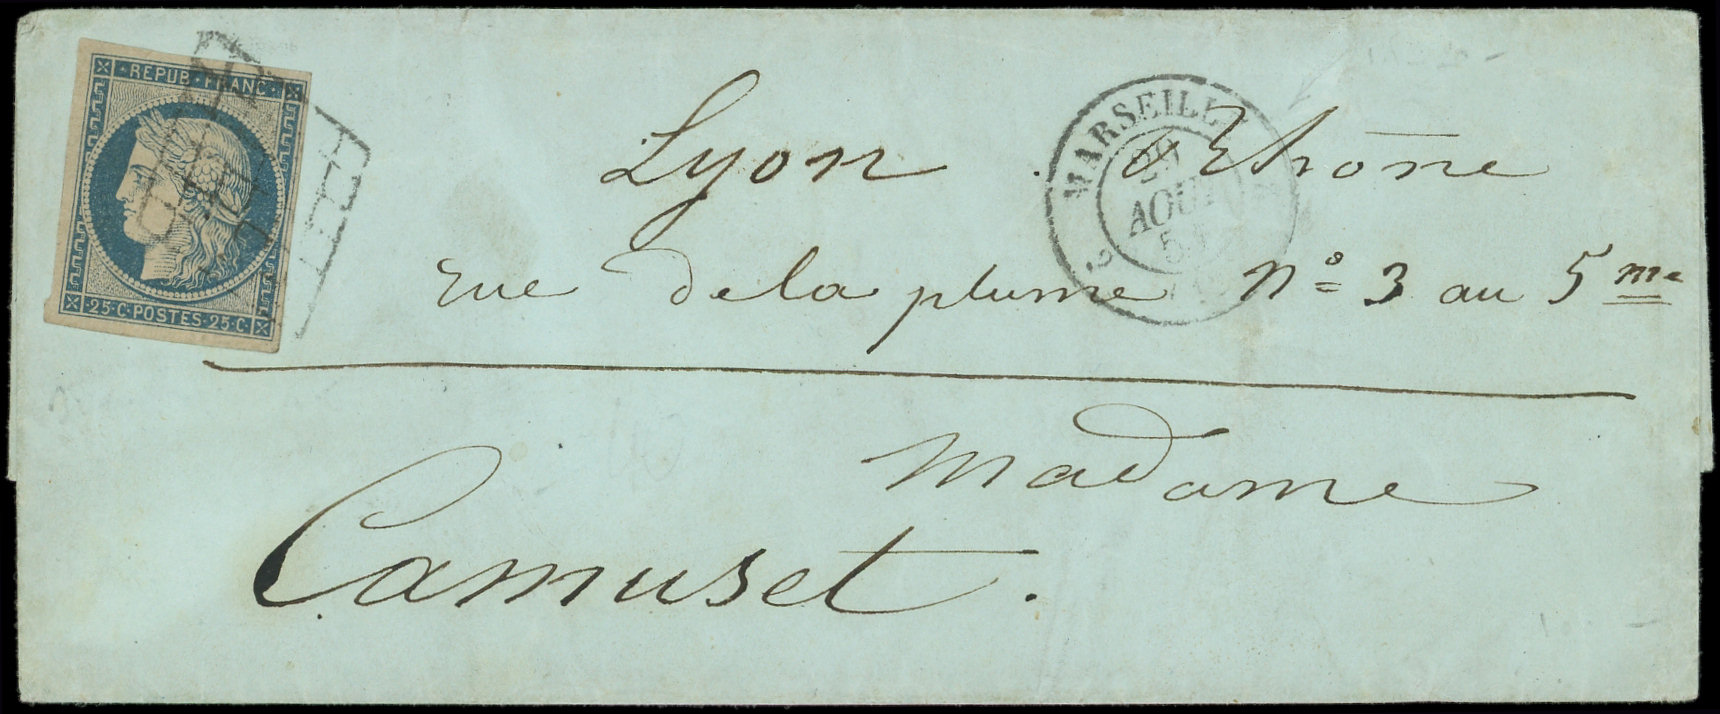 REPUB · FRANC
25 · C · POSTES · 25 · C
MARSEILLE
AOUT
Lyon . Rhône
rue de la plume n° 3 au 5me
Madame
Camuset .